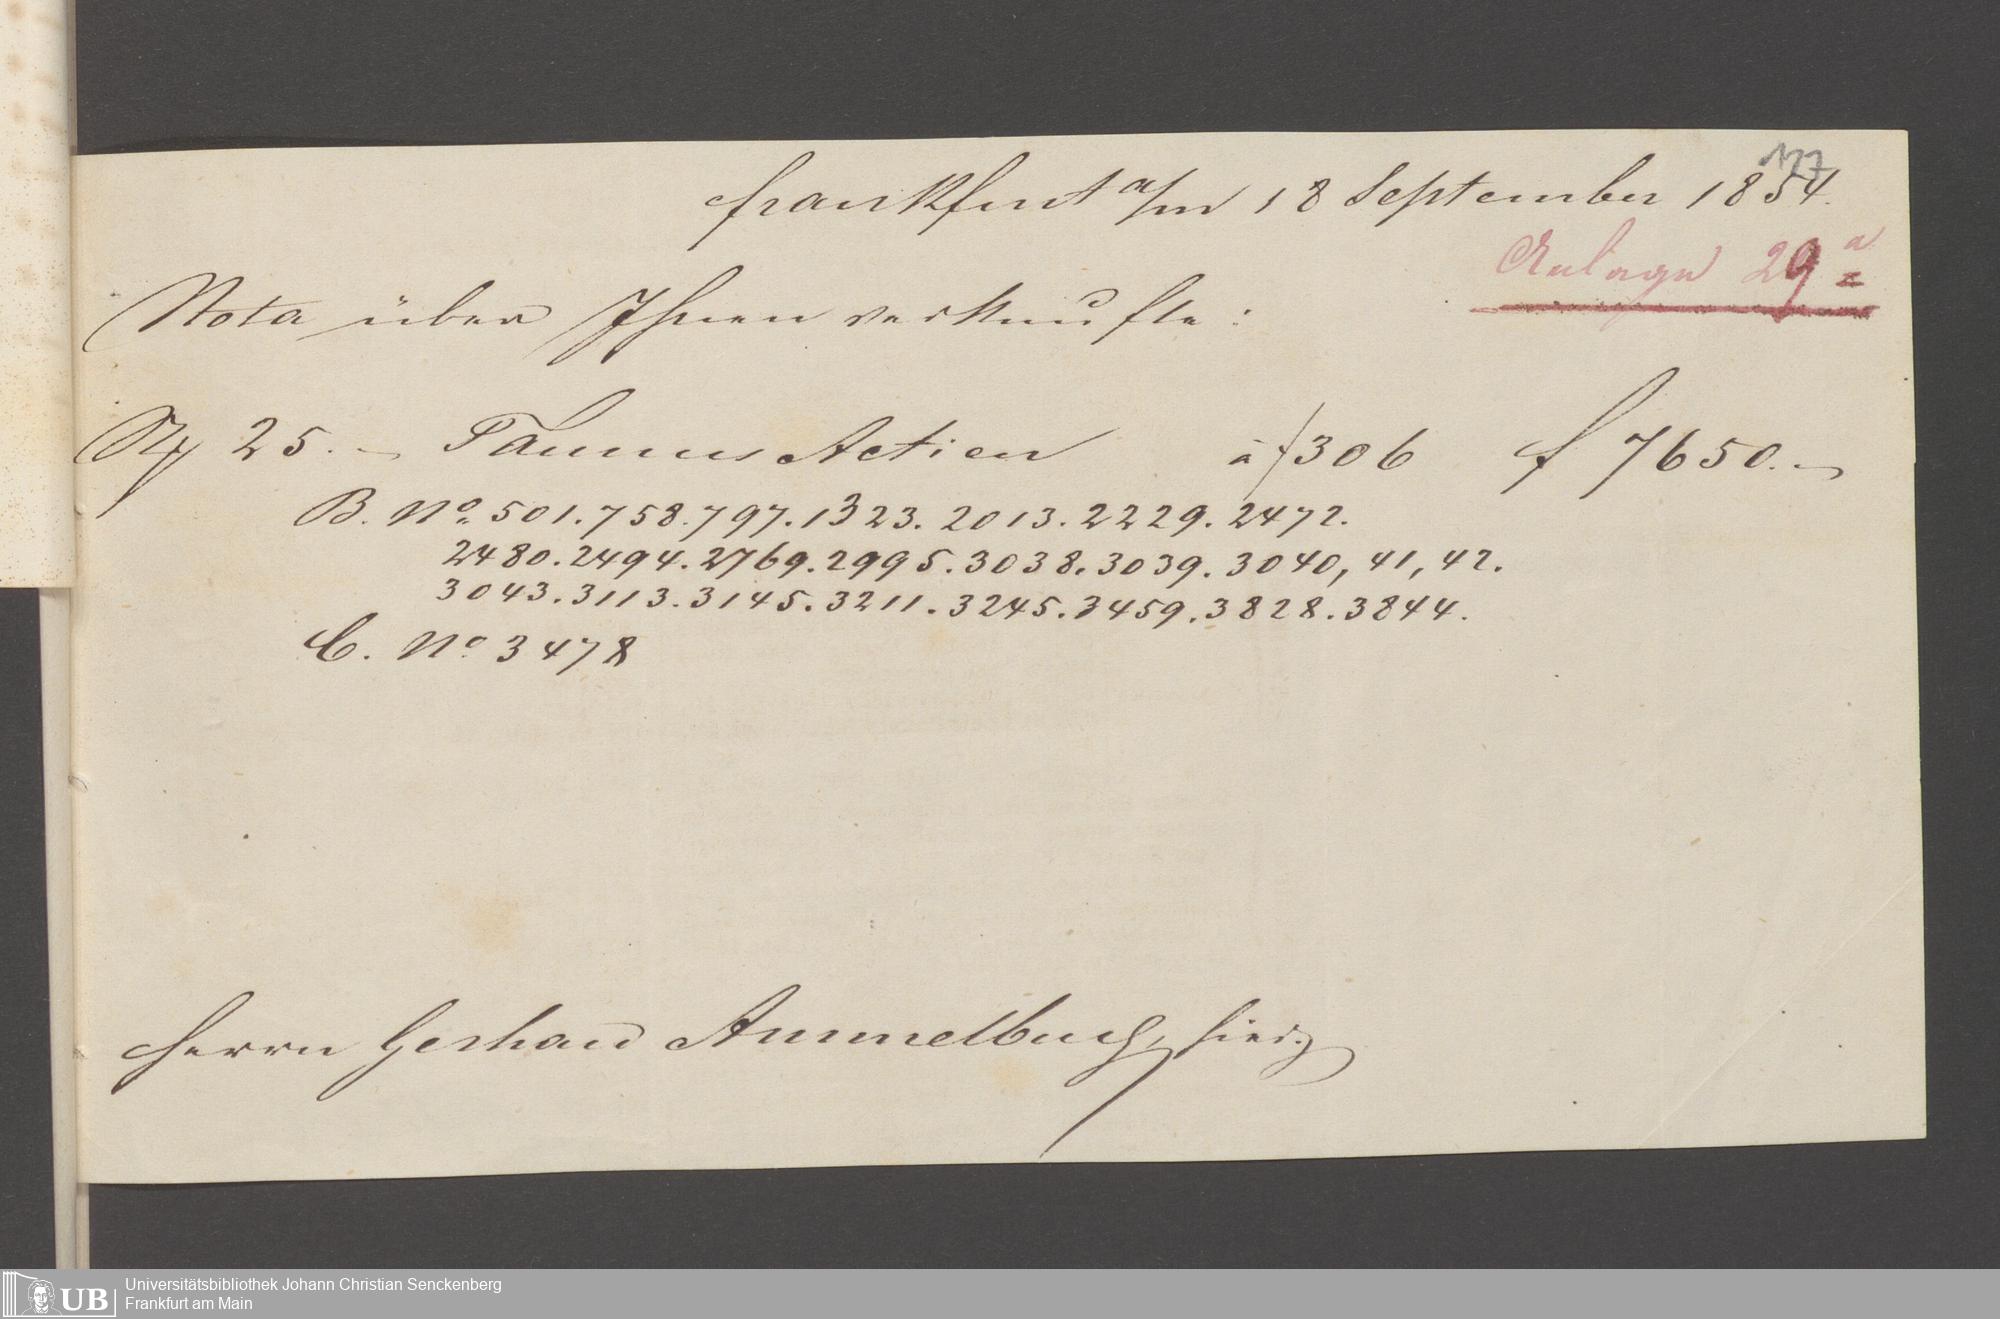 127
Frankfurt a/m 18 September 1854.
Anlage 29 a
Nota über Ihnen verkaufte:
25. – Taunus Actien à f 306 f 7650. –
B. No. 501. 758. 797. 1323. 2013. 2229. 2472.
2480. 2494. 2769. 2995. 3038. 3039. 3040, 41, 42.
3043. 3113. 3145. 3211. 3245. 3459. 3828. 3844.
C. No 3478
Herrn Gerhard Ammelburg, hier
UB
Universitätsbibliothek Johann Christian Senckenberg
Frankfurt am Main